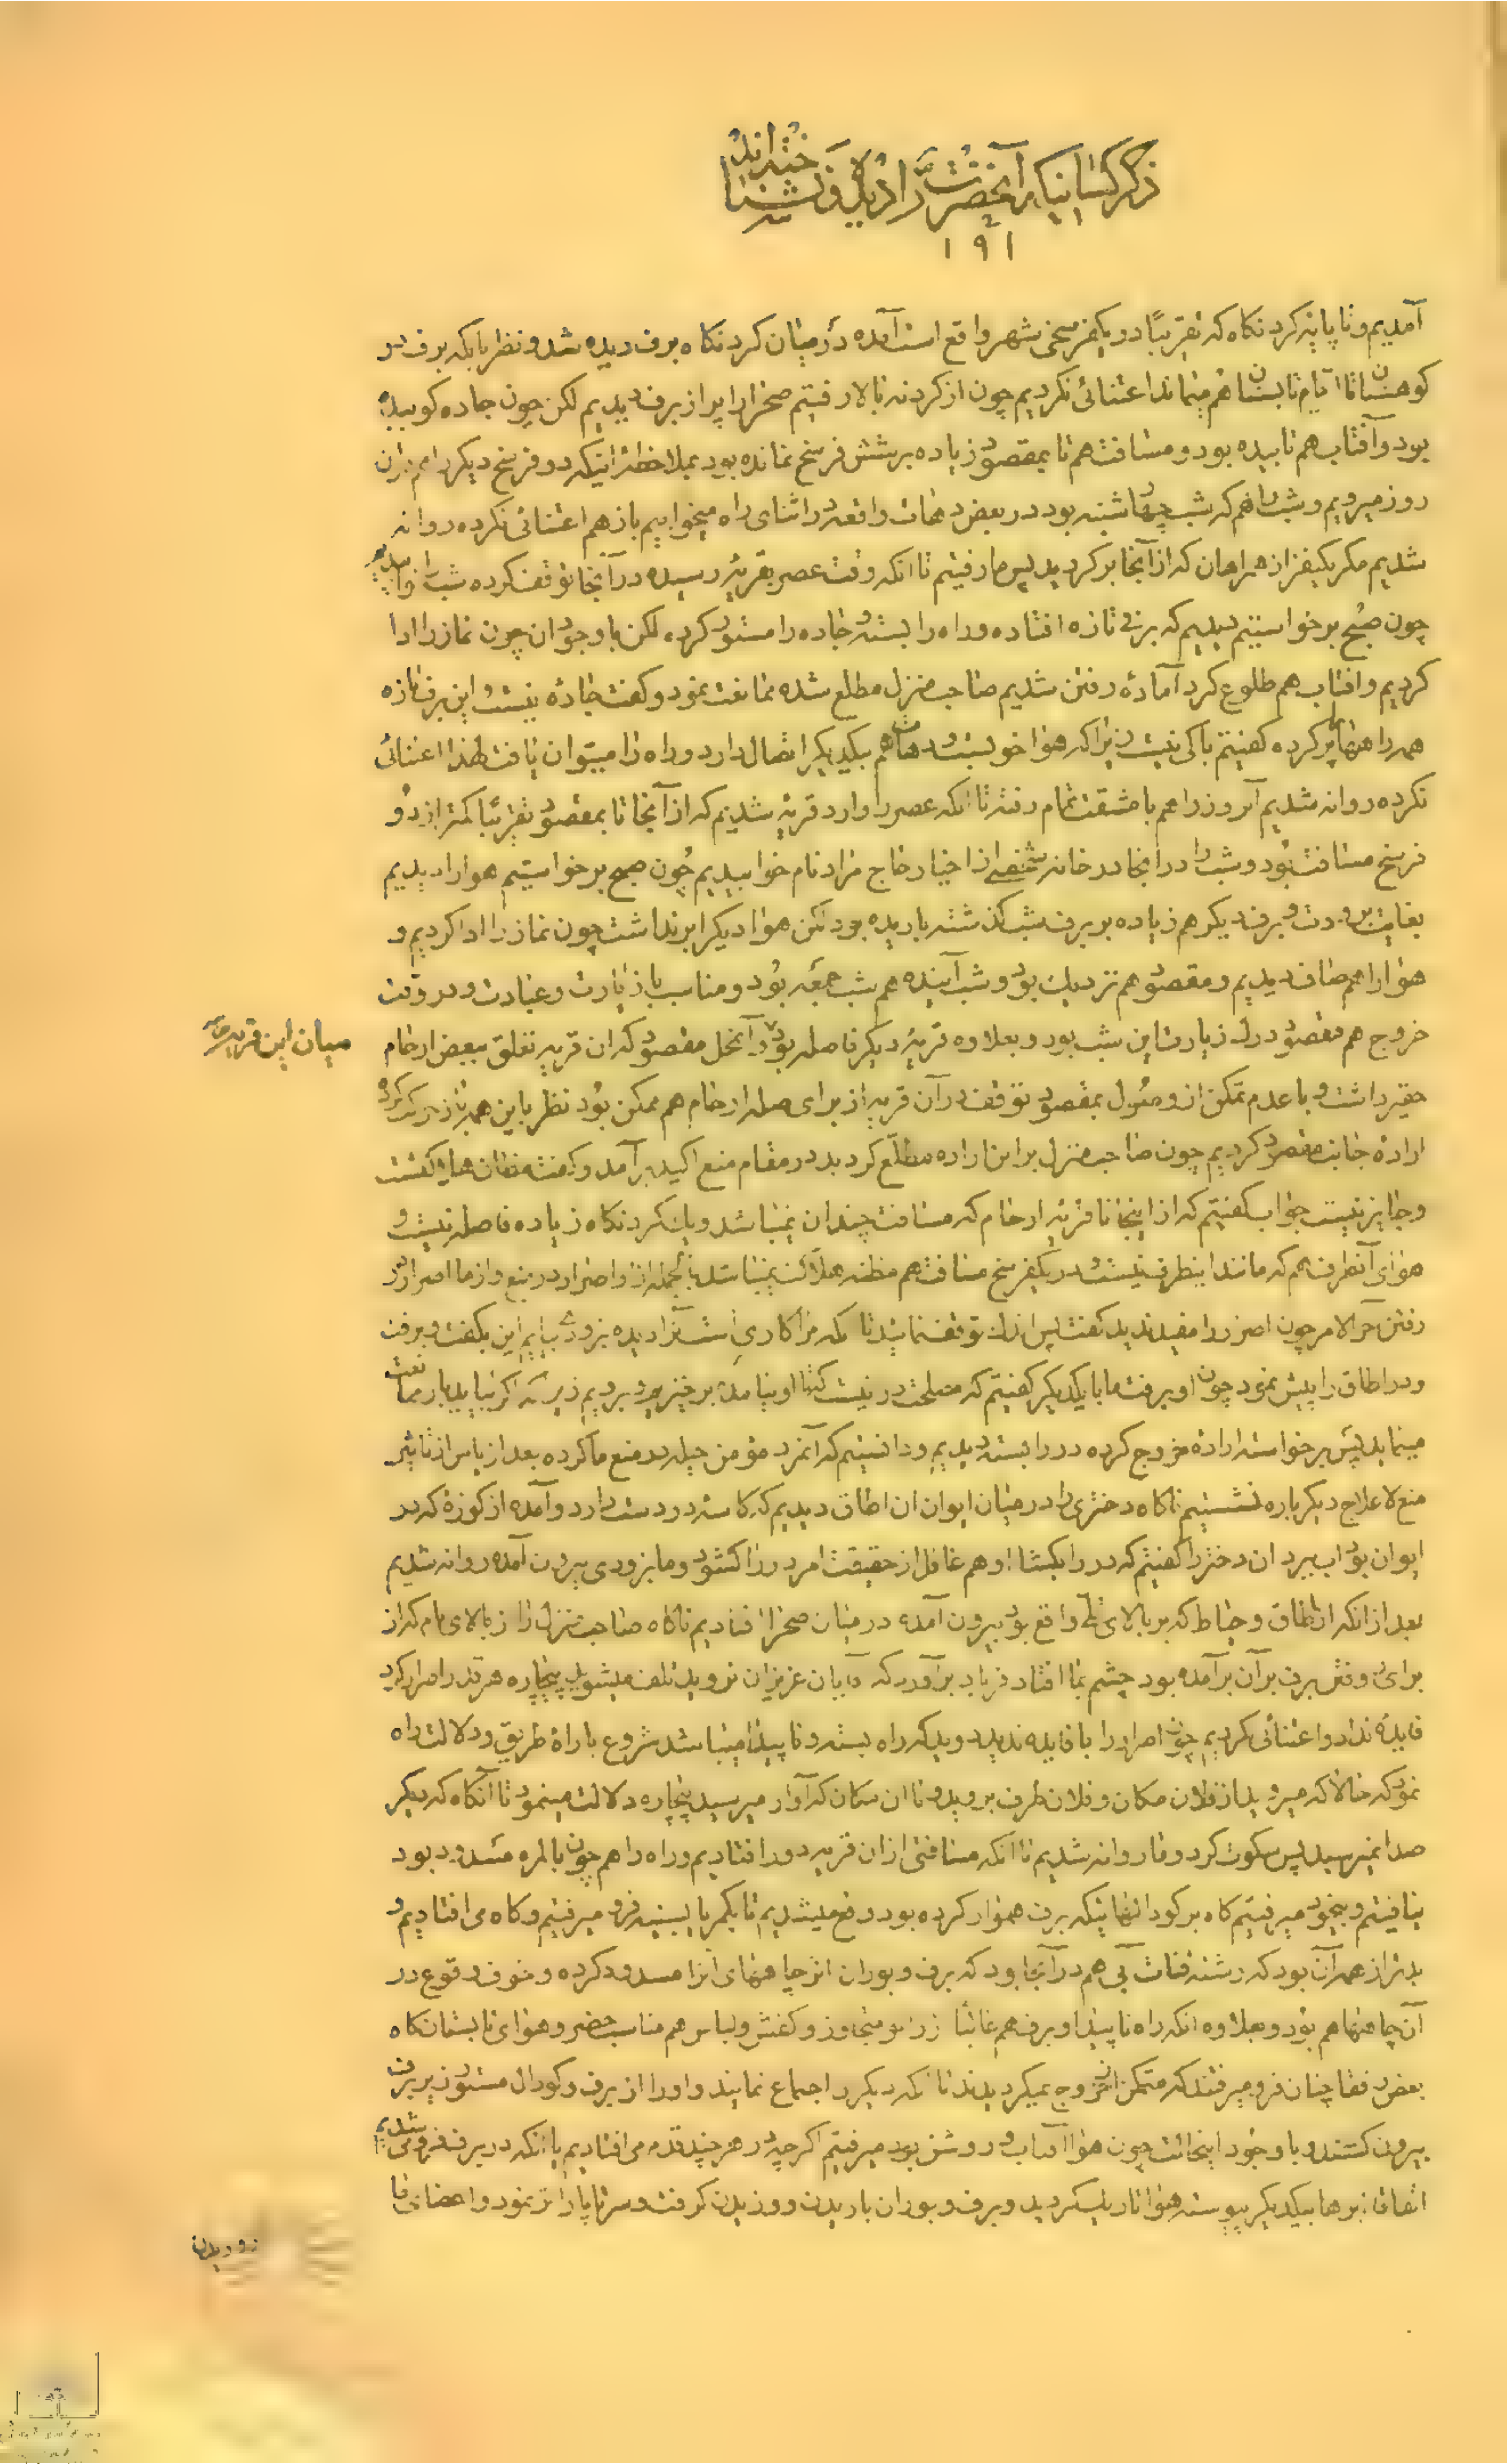 ذکر کسانیکه آنحضرت را در بلا و نشناخته‌اند
۱۹۱
آمدیم و تا پایه کردنکاه که تقریبًا در یکفرسخی شهر واقع است آمده در میان کردنکاه برف دیده شد و نظر باینکه برف در
کوهستانات ایام تابستان هم میماند اعتنائی نکردیم چون از کردنه بالا رفتیم صحرا را پر از برف دیدیم لکن چون جاده کوبیده
بود و آفتاب هم تابیده بود و مسافت هم تا بمقصود زیاده بر شش فرسخ نمانده بود بملاحظه اینکه دو فرسخ دیکر را هم در ان
روز میرویم و شب را هم که شب چهارشنبه بود در بعض دهات واقعه در اثنای راه میخوابیم باز هم اعتنائی نکرده روانه
شدیم مکر یکنفر از همراهان که از آنجا برکردید پس ما رفتیم تا انکه وقت عصر بقریه رسیده در آنجا توقف کرده شب را خوابیدیم
چون صبح برخواستیم دیدیم که برف تازه افتاده و راه را بسته و جاده را مسدود کرده لکن با وجود ان چون نماز را ادا
کردیم و افتاب هم طلوع کرد آمادهٔ رفتن شدیم صاحب منزل مطلع شده ممانعت نمود و کفت جاده نیست و این برف تازه
همه راهها را پر کرده کفتیم باکی نیست زیرا که هوا خوبست و دهات هم بیکدیکر اتصال دارد و راه را میتوان یافت لهذا اعتنائی
نکرده روانه شدیم آنروز را هم با مشقت تمام رفته تا انکه عصر را وارد قریه شدیم که از آنجا تا بمقصود تقریبًا کمتر از دو
فرسخ مسافت بود و شب را در انجا در خانه شخصی از اخیار حاج مراد نام خوابیدیم چون صبح برخواستیم هوا را دیدیم
بغایت برودت و برف دیکر هم زیاده بر برف شب کذشته باریده بود لکن هوا دیکر ابر نداشت چون نماز را ادا کردیم و
هوا را هم صاف دیدیم و مقصود هم نزدیک بود و شب آینده هم شب جمعه بود و مناسب با زیارت و عبادت و در وقت
خروج هم مقصود درک زیارت این شب بود و بعلاوه قریه دیکر فاصله بود و آنمحل مقصود که ان قریه تعلق ببعض ارحام
میان این قریه
حقیر داشت و با عدم تمکن از وصول بمقصود توقف در آن قریه از برای صله ارحام هم ممکن بود نظر باین همه باز حرکت کرده
ارادهٔ جانب مقصود کردیم چون صاحب منزل بر این اراده مطلع کردید در مقام منع اکید برآمد و کفت مظان هلاکتست
و جایز نیست جواب کفتیم که از اینجا تا قریه ارحام که مسافت چندان نمیباشد و یک کردنکاه زیاده فاصله نیست و
هوای آنطرف هم که مانند اینطرف نیست و در یکفرسخ مسافت هم مظنه هلاکت نمیباشد بالجمله از او اصرار در منع و از ما اصرار در
رفتن آخر الامر چون اصرار را مفید ندید کفت پس اندک توقف نمائید تا که مرا کاریست آنرا دیده بزودی بیایم این بکفت و برفت
و در اطاق را پیش نمود چون او برفت ما با یکدیکر کفتیم که مصلحت در نیست که تا او نیامده برخیزیم و برویم زیرا که اکر بیاید باز ممانعت
مینماید پس برخواسته ارادهٔ خروج کرده در را بسته دیدیم و دانستیم که آنمرد مؤمن حیله در منع ما کرده بعد از یاس از تاثیر
منع لاعلاج دیکر باره نشستیم ناکاه دختری را در میان ایوان ان اطاق دیدیم که کاسه در دست دارد و آمده از کوزهٔ که در
ایوان بود اب ببرد ان دختر را کفتیم که در را بکشا او هم غافل از حقیقت امر در را کشود و ما بزودی بیرون آمده روانه شدیم
بعد از انکه از اطاق و حیاط که بر بالای تلی واقع بود بیرون آمده در میان صحرا افتادیم ناکاه صاحب منزل را از بالای بام که از
برای رفتن برف بر آن برآمده بود چشم بما افتاد فریاد برآورد که آقایان عزیزان نروید تلف میشوید بیچاره هر قدر اصرار کرد
فایده نداد و اعتنائی نکردیم چون اصرار را با فایده ندید دوید که راه بسته و ناپیدا میباشد شروع باراهٔ طریق و دلالت راه
نمود که حالا که میروید از فلان مکان و فلان طرف بروید و تا ان مکان که آواز میرسید بیچاره دلالت مینمود تا آنکاه که دیکر
صدا نمیرسید پس سکوت کرد و ما روانه شدیم تا انکه مسافتی از ان قریه دور افتادیم و راه را هم چون بالمره مسدود بود
نیافتیم و بیخود میرفتیم کاه بر کودالهائیکه برف هموار کرده بود واقع میشدیم تا بکمر یا بسینه فرو میرفتیم و کاه می افتادیم و
بدتر از همه آن بود که رشته قنات آبی هم در آنجا بود که برف و بوران اثر چاههای آنرا مسدود کرده و خوف وقوع در
آن چاهها هم بود و بعلاوه انکه راه ناپیدا و برف هم غالبًا از زانو متجاوز و کفش و لباس هم مناسب حضر و هوای تابستان کاه
بعض رفقا چنان فرو میرفتند که متمکن از خروج نمیکردیدند تا انکه دیکران اجماع نمایند و او را از برف و کودال مستور زیر برف
بیرون کشند و با وجود اینحالت چون هوا افتاب و روشن بود میرفتیم اکرچه در هر چند قدم می افتادیم یا انکه در برف فرو میشدیم
اتفاقا ابرها بیکدیکر پیوسته هوا تاریک کردید و برف و بوران باریدن و وزیدن کرفت و سر تا پا را تر نمود و اعضای ما